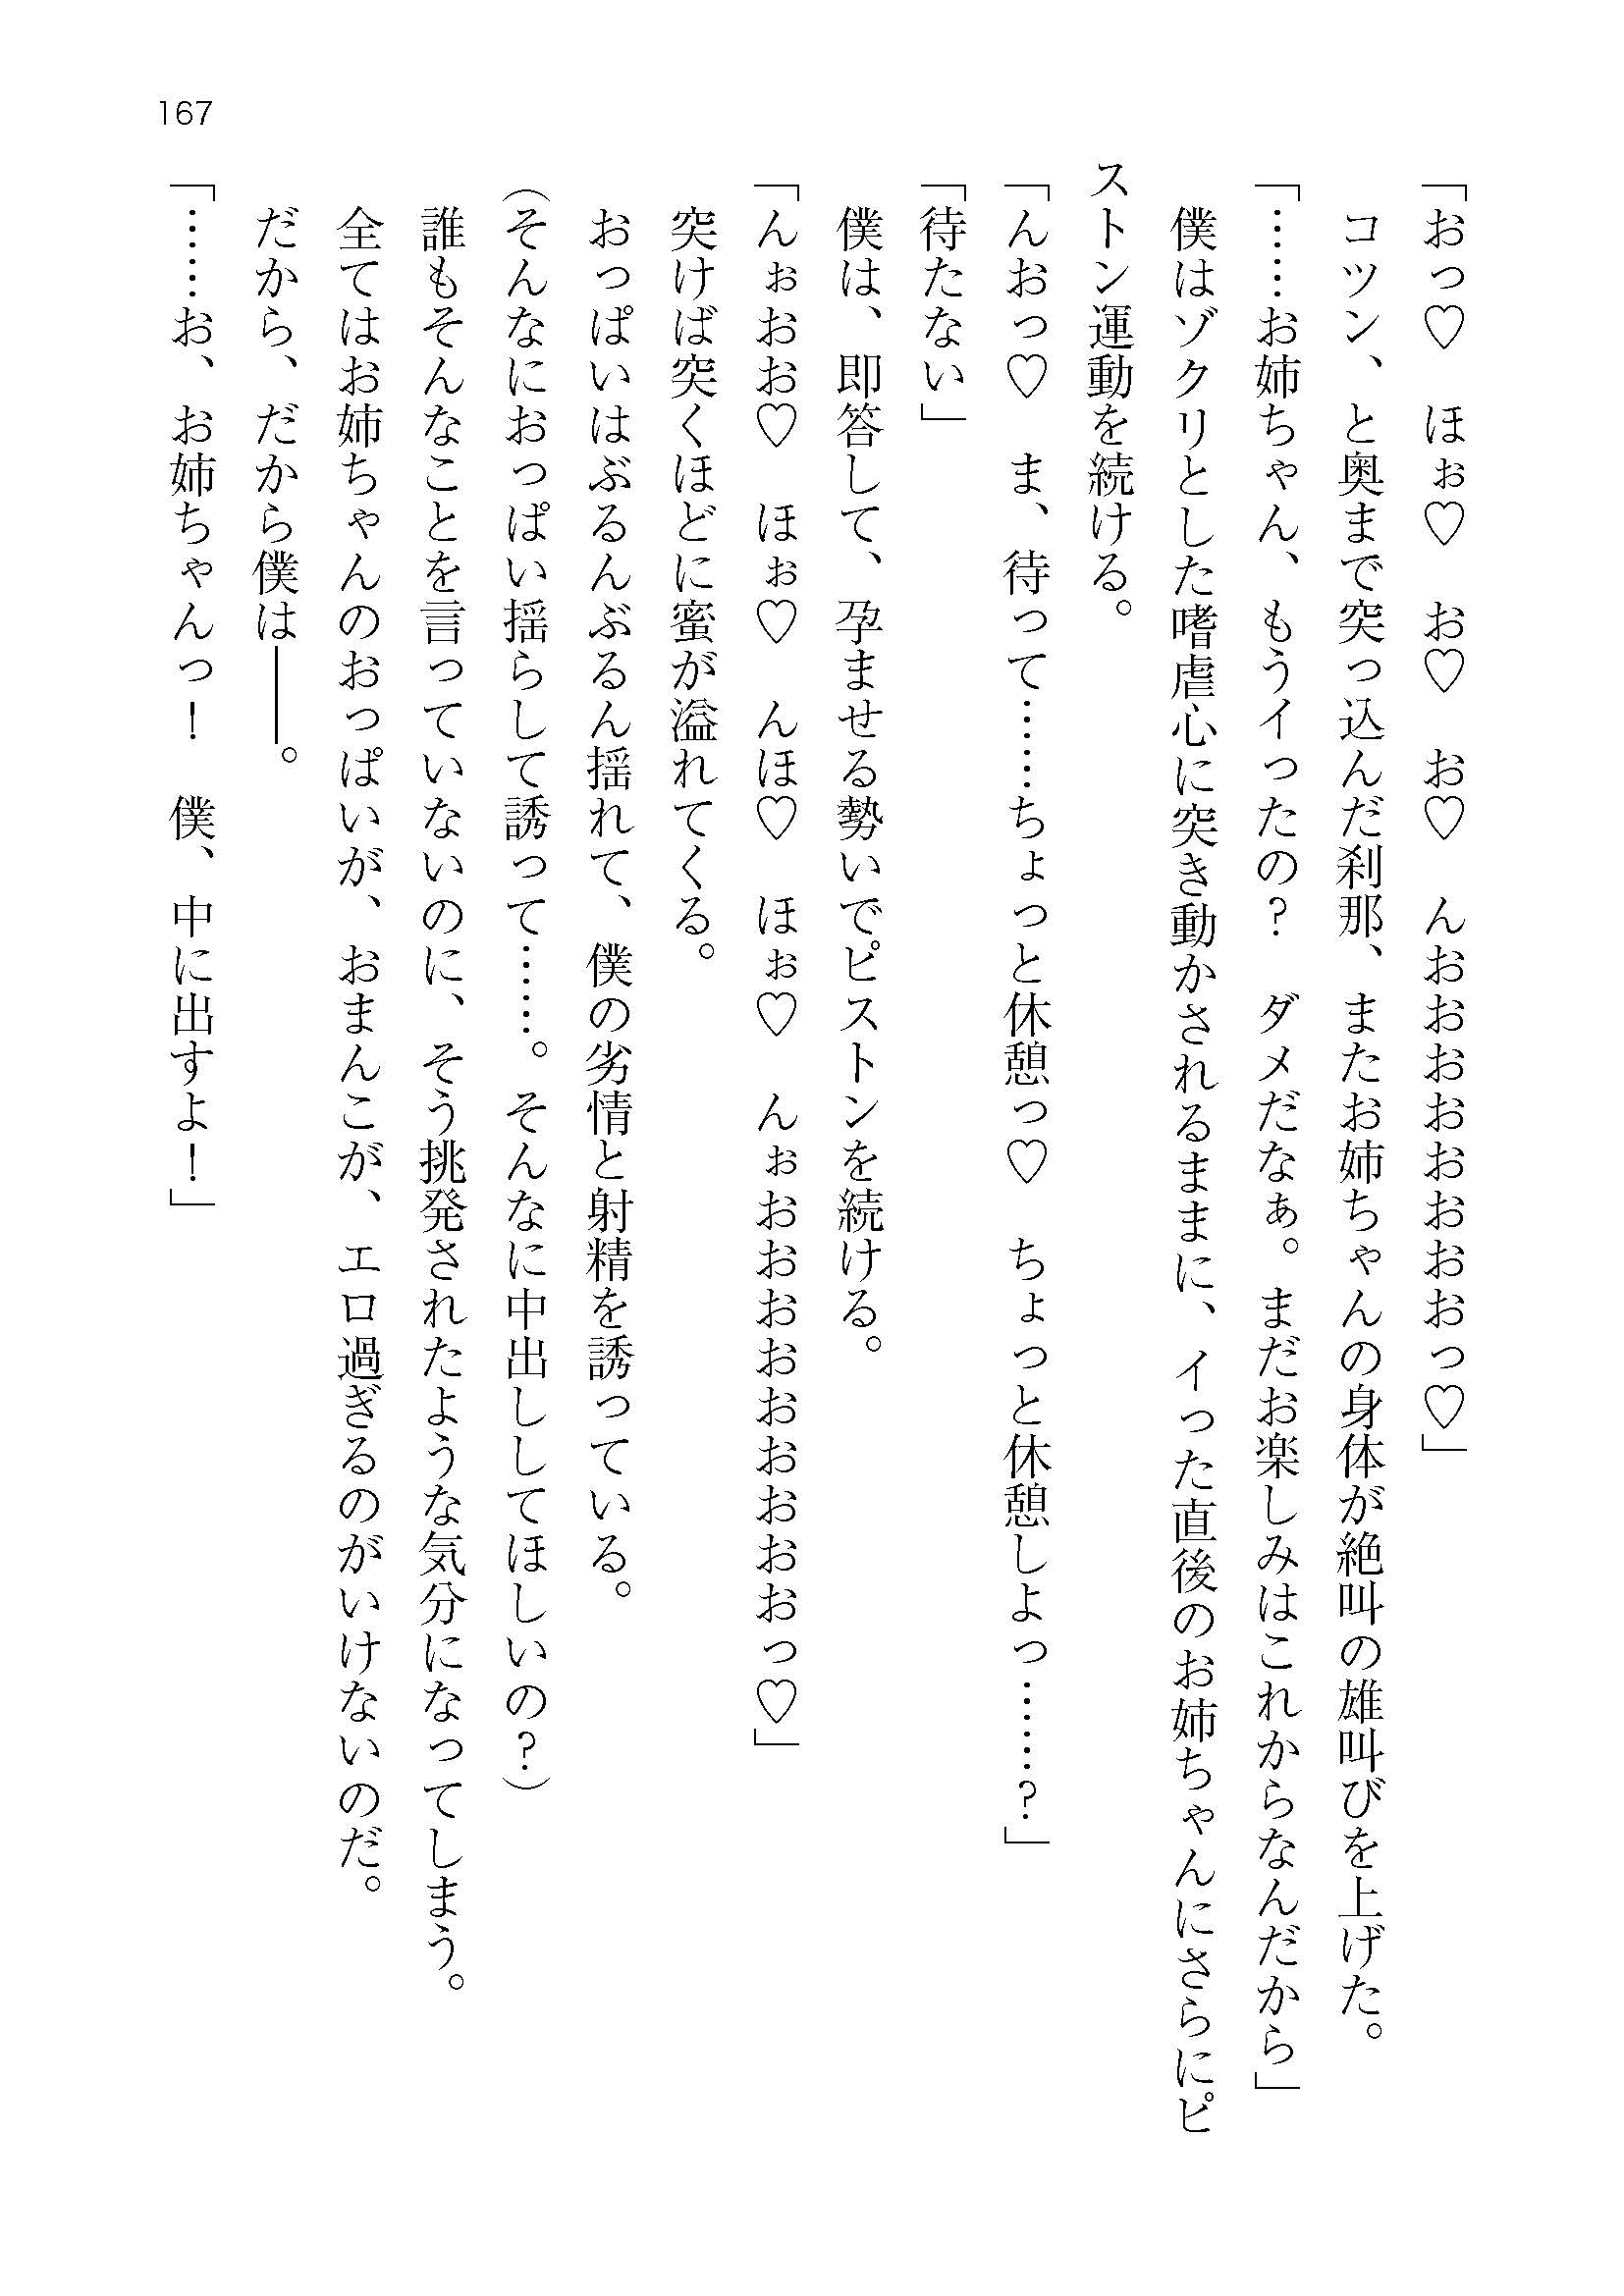 167
「おっ♡　ほぉ♡　お♡　お♡　んおおおおおおおおっ♡」
　コツン、と奥まで突っ込んだ刹那、またお姉ちゃんの身体が絶叫の雄叫びを上げた。
「……お姉ちゃん、もうイったの？　ダメだなぁ。まだお楽しみはこれからなんだから」
　僕はゾクリとした嗜虐心に突き動かされるままに、イった直後のお姉ちゃんにさらにピ
ストン運動を続ける。
「んおっ♡　ま、待って……ちょっと休憩っ♡　ちょっと休憩しよっ……？」
「待たない」
　僕は、即答して、孕ませる勢いでピストンを続ける。
「んぉおお♡　ほぉ♡　んほ♡　ほぉ♡　んぉおおおおおおおおおっ♡」
　突けば突くほどに蜜が溢れてくる。
　おっぱいはぶるんぶるん揺れて、僕の劣情と射精を誘っている。
（そんなにおっぱい揺らして誘って……。そんなに中出ししてほしいの？）
　誰もそんなことを言っていないのに、そう挑発されたような気分になってしまう。
　全てはお姉ちゃんのおっぱいが、おまんこが、エロ過ぎるのがいけないのだ。
　だから、だから僕は――。
「……お、お姉ちゃんっ！　僕、中に出すよ！」